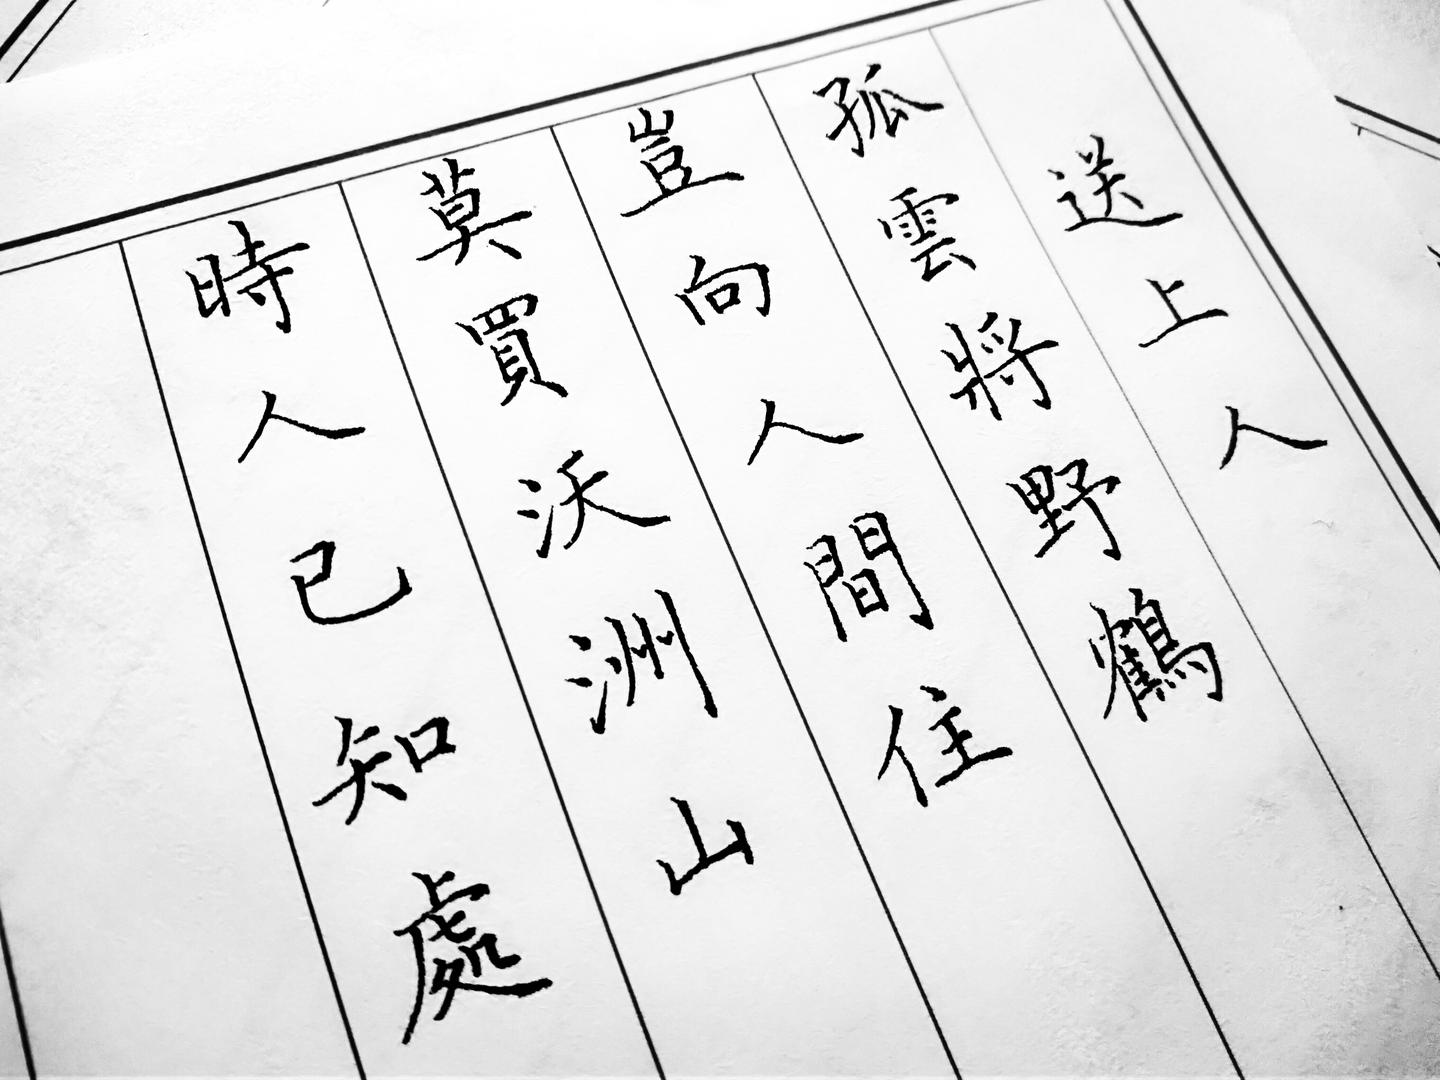 送上人
孤雲將野鶴
豈向人間住
莫買沃洲山
時人已知處